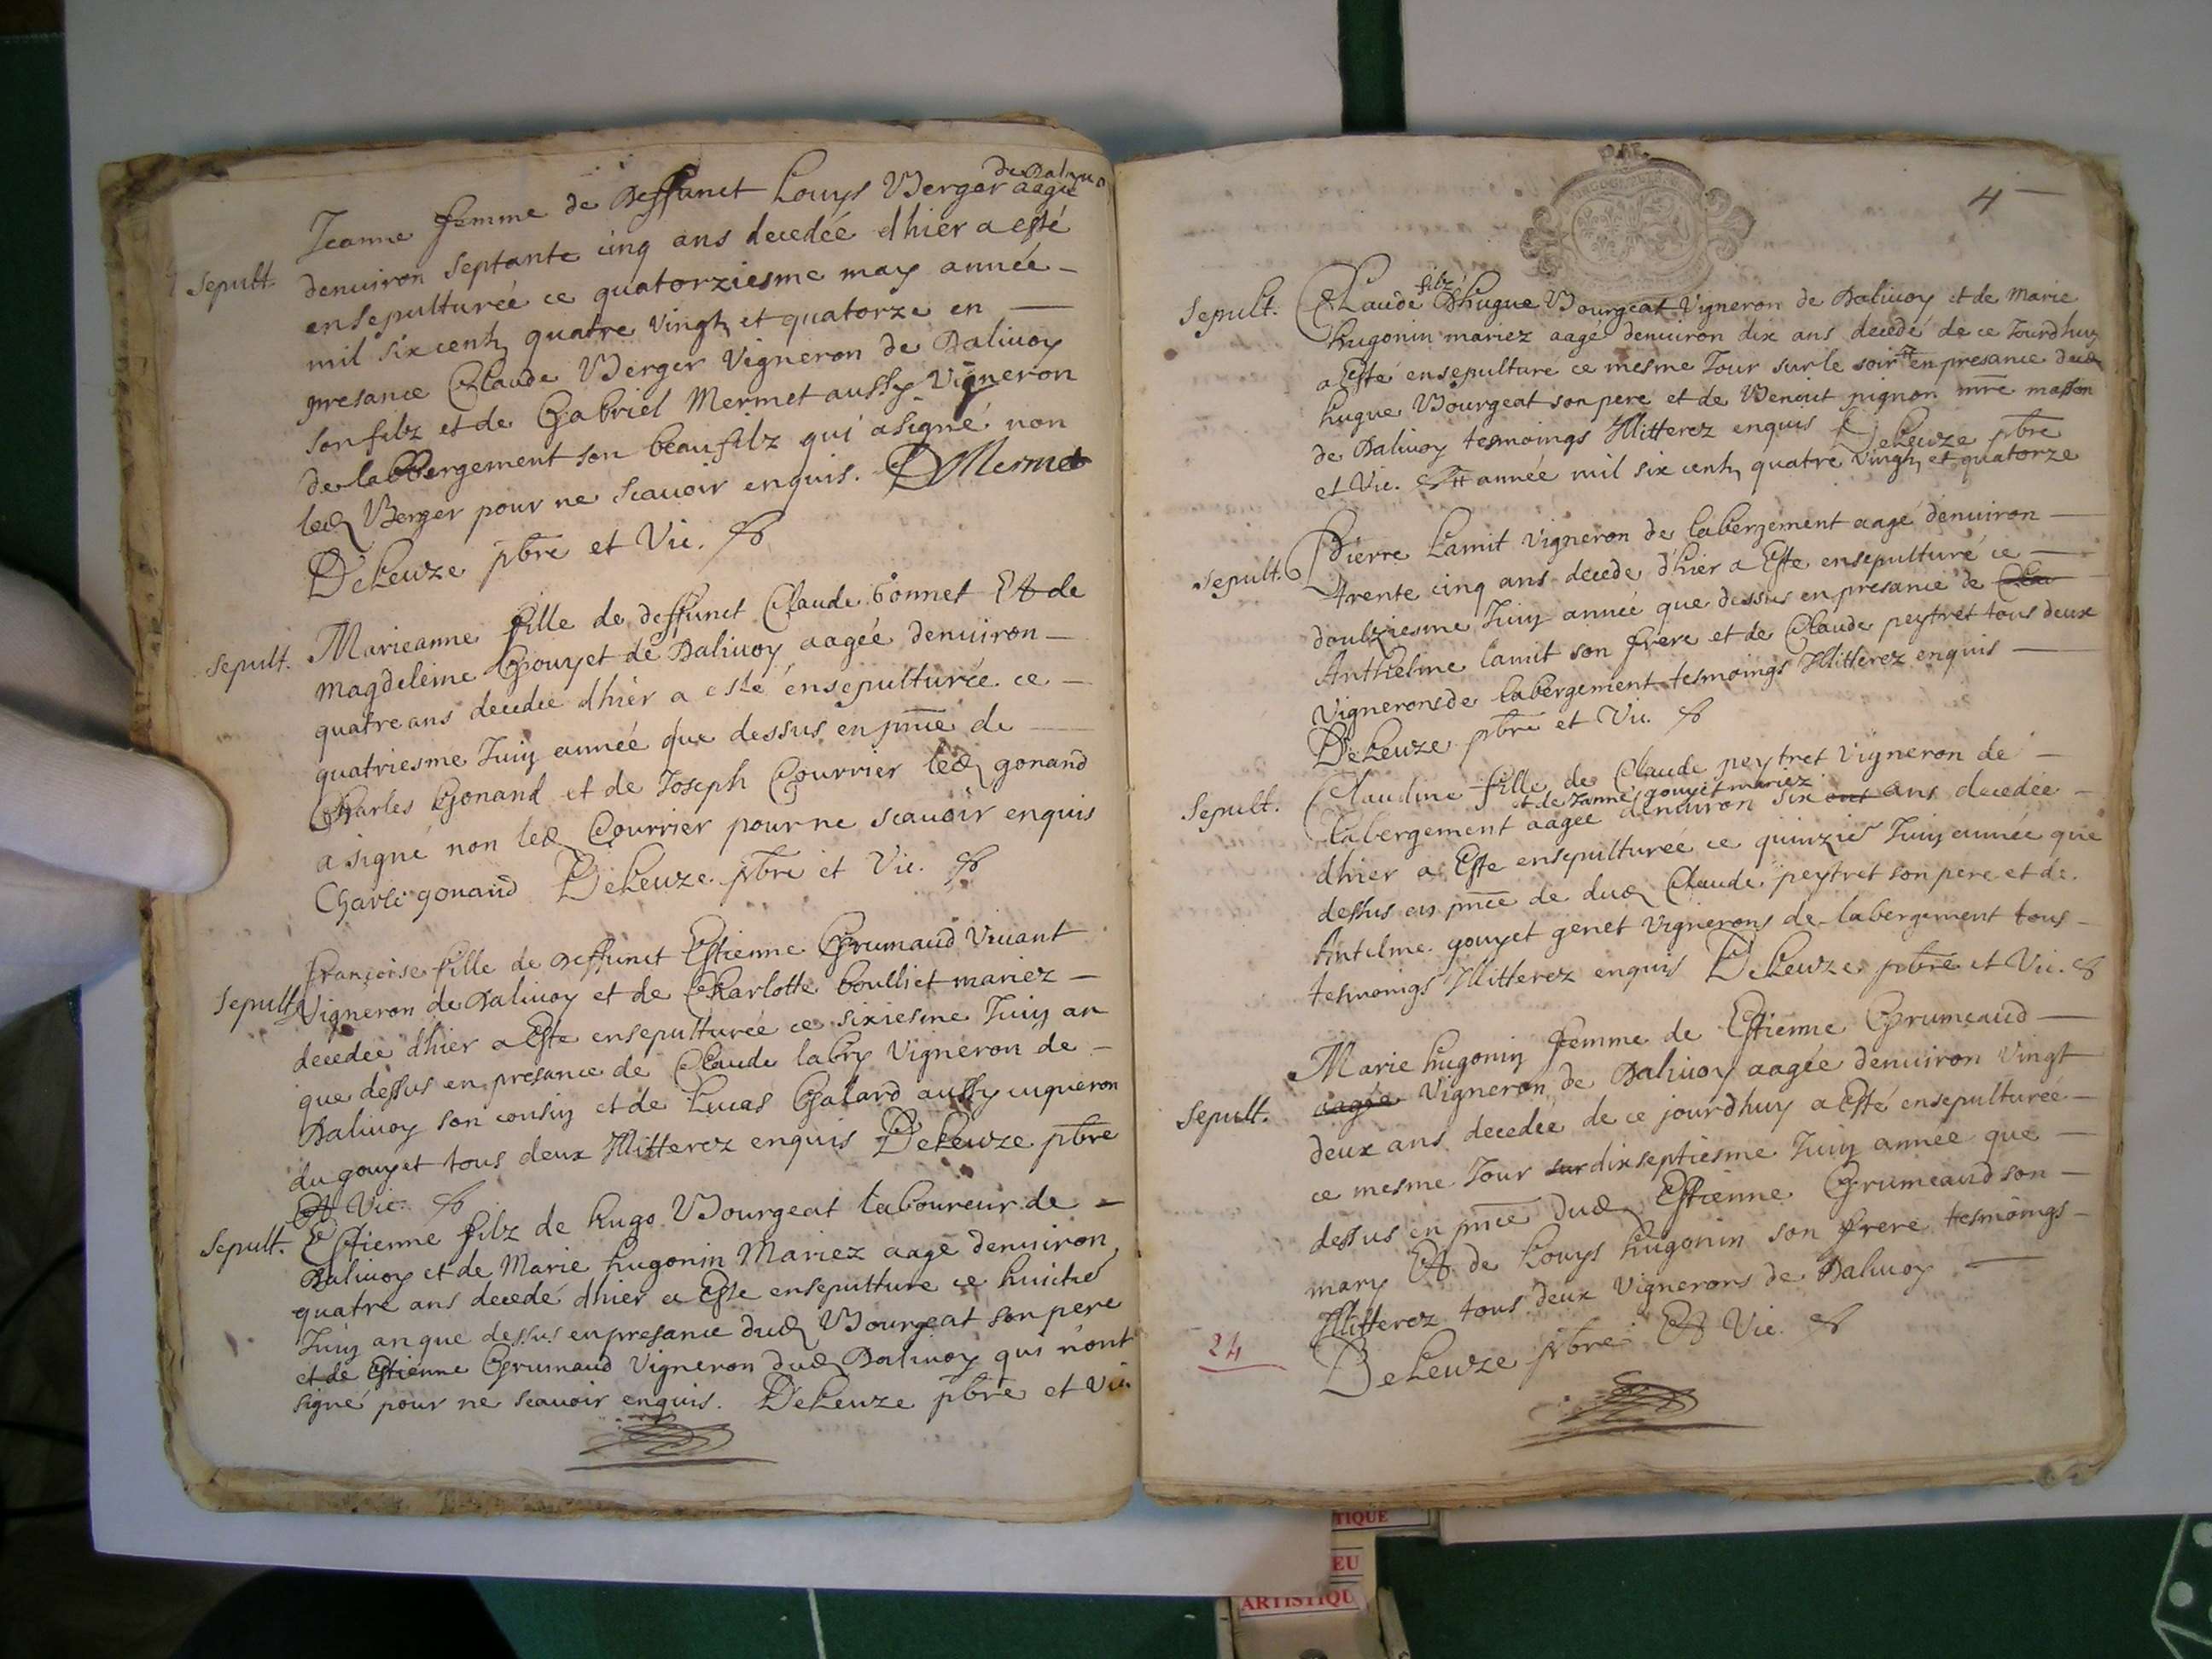 de Daliuo
Jeanne femme de Deffunct Louys Berger aagée
Sepult. denuiron septante cinq ans decedée dhier a esté
ensepulturée ce quatorziesme may année
mil six centz quatre vingtz et quatorze en
presance Claude Berger Vigneron de Daliuoy
son filz et de Gabriel Mermet aussy Vigneron
de labbergement son beaufilz qui a signé non
led Berger pour ne scauoir enquis. Mermet
DeLeuze pbre et Vic.
Marieanne fille de deffunct Claude bonnet Et de
Sepult. Magdeleine Gouyet de Daliuoy aagée denuiron
quatre ans decedée dhier a esté ensepulturée ce
quatriesme Juin année que dessus en pnce de
Charles Gonand et de Joseph Courrier led gonand
a signé non led Courrier pour ne scauoir enquis
Charle gonand DeLeuze pbre et Vic.
françoise fille de deffunct Estienne Grumaud Viuant
Sepult. Vigneron de Daliuoy et de Charlotte boulliet mariez
decedée dhier a Esté ensepulturée ce sixiesme Juin an
que dessus en presance de Claude labry Vigneron de
Daliuoy son cousin et de Lucas Galard aussy uigneron
du gouyet tous deux Illitterez enquis DeLeuze pbre
Et Vic.
Sepult. Estienne filz de hugo Bourgeat laboureur de
Daliuoy et de Marie hugonin Mariez aagé denuiron
quatre ans decedé dhier a Esté ensepulturé ce huictie
Juin an que dessus en presance dud Bourgeat son pere
et de Estienne Grumaud Vigneron dud Daliuoy qui n'ont
signé pour ne scauoir enquis. DeLeuze pbre et Vic.
4
filz
Sepult. Claude Dhugue Bourgeat Vigneron de Daliuoy et de Marie
hugonin mariez aagé denuiron dix ans decedé de ce Jourdhuy
a Esté ensepulturé ce mesme Jour sur le soir en presance dud
hugue Bourgeat son pere et de Benoit pignon mre masson
de Daliuoy tesmoings Illitterez enquis DeLeuze pbre
et Vic. année mil six centz quatre vingtz et quatorze
Pierre Lamit Vigneron de labergement aagé denuiron
Sepult. trente cinq ans decedé dhier a Esté ensepulturé ce
doulziesme Juin année que dessus en presance de Clau
Anthelme lamit son frere et de Claude peytret tous deux
Vignerons de labergement tesmoings Illitterez enquis
DeLeuze pbre et Vic.
Claudine fille de Claude peytret Vigneron de
et de Zanne gouyet mariez
Sepult. labergement aagée denuiron six ans decedée
dhier a Esté ensepulturée ce quinzie Juin année que
dessus en pnce de dud Claude peytret son pere et de
Antelme gouyet genet Vignerons de labergement tous
tesmoings Illitterez enquis DeLeuze pbre et Vic.
Marie hugonin femme de Estienne Grumeaud
Sepult. aagée Vigneron de Daliuoy aagée denuiron Vingt
deux ans decedée de ce jourdhuy a Esté ensepulturée
ce mesme Jour sur dixseptiesme Juin année que
dessus en pnce dud Estienne Grumeaud son
mary Et de Louys hugonin son frere tesmoings
Illitterez tous deux Vignerons de Daliuoy
24
DeLeuze pbre Et Vic.
TIQUE
EU
ARTISTIQU